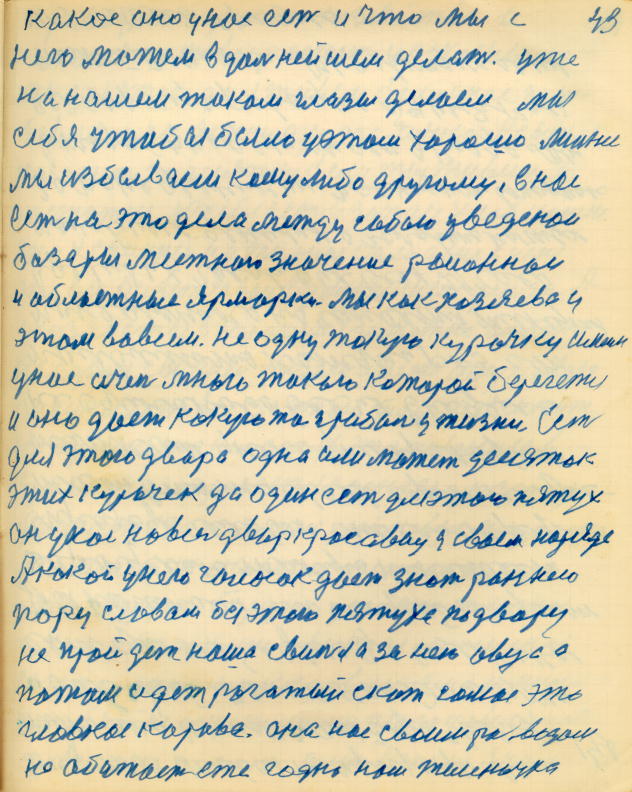 Какое оно унас ест и что мы с 43
него можем в дальнейшем делат. уже
на нашем таком глазы делаем мы
себя чтобы было уэтом хорошо мение
мы избываем кому либо другому, в нас
ест на это дела между собою уведеной
базары местного значение районной
и областные ярморки. мы как хозяева и
этом вовсем. не одну такую курочку имеим
унас очен много такого которой берегети
и оно дает какуюто прибал у жизни. Ест
для этого двара одна или может десяток
этих курочек да один ест дляэтого пятух
онукас новес двар красавец у своем наряде
А какой у него галосок дает знат раннею
пору словам без этого пятуха подвару
не пройдет наша свиня а за нею овца а
патом идет рагатый скот самое это
главное карова. она нас своим развозом
не абижает еже годно нам теленочка